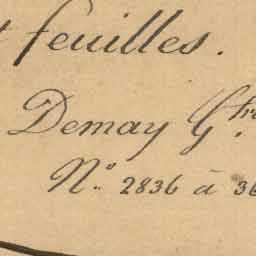 t feuilles.
Demay G.
N.º 2836 à 36